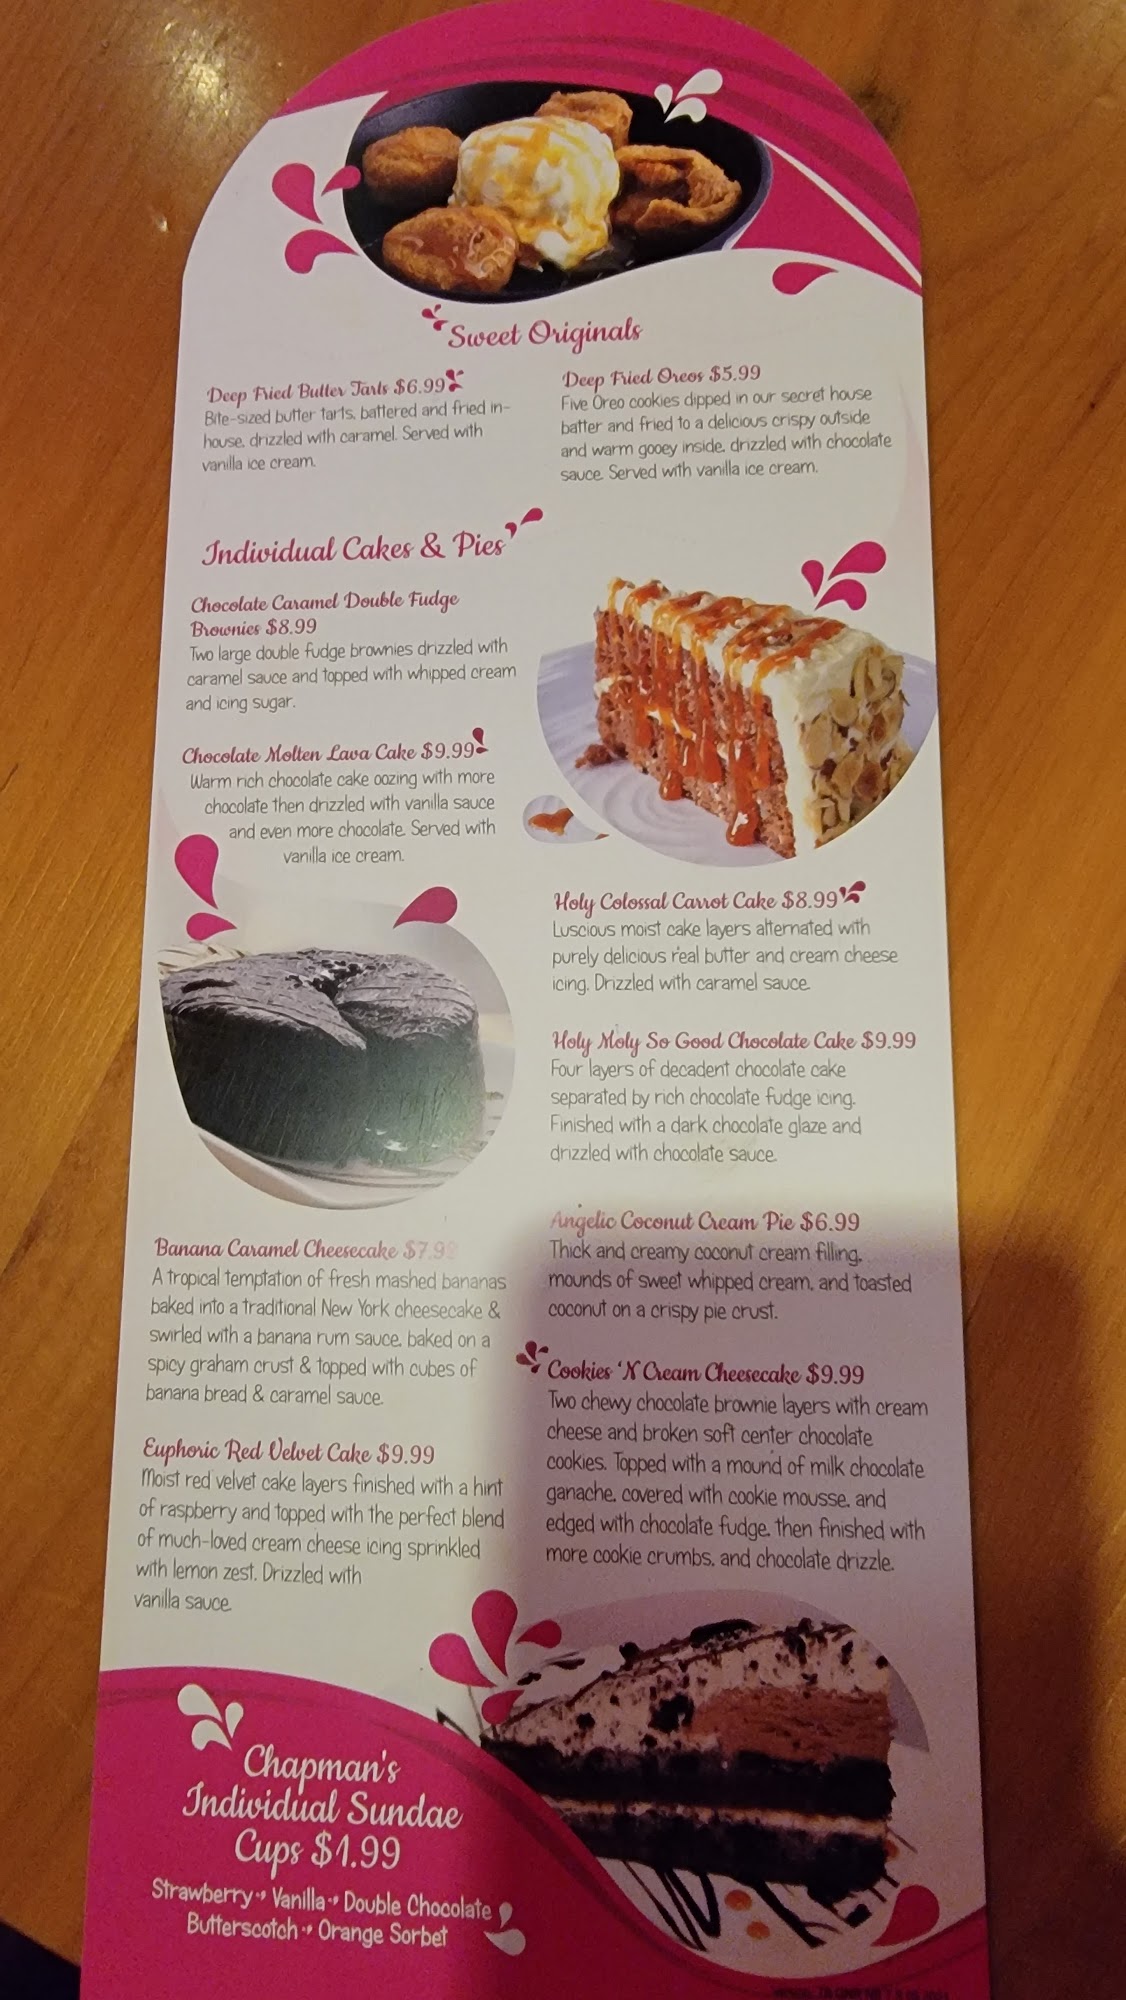 Sweet Originals
Deep Fried Butter Tarts $6.99
Bite-sized butter tarts, battered and fried in-
house, drizzled with caramel. Served with
vanilla ice cream.
Deep Fried Oreos $5.99
Five Oreo cookies dipped in our secret house
batter and fried to a delicious crispy outside
and warm gooey inside, drizzled with chocolate
sauce. Served with vanilla ice cream.
Individual Cakes & Pies
Chocolate Caramel Double Fudge
Brownies $8.99
Two large double fudge brownies drizzled with
caramel sauce and topped with whipped cream
and icing sugar.
Chocolate Molten Lava Cake $9.99
Warm rich chocolate cake oozing with more
chocolate then drizzled with vanilla sauce
and even more chocolate. Served with
vanilla ice cream.
Banana Caramel Cheesecake $7.99
A tropical temptation of fresh mashed bananas
baked into a traditional New York cheesecake &
swirled with a banana rum sauce, baked on a
spicy graham crust & topped with cubes of
banana bread & caramel sauce.
Euphoric Red Velvet Cake $9.99
Moist red velvet cake layers finished with a hint
of raspberry and topped with the perfect blend
of much-loved cream cheese icing sprinkled
with lemon zest. Drizzled with
vanilla sauce.
Holy Colossal Carrot Cake $8.99
Luscious moist cake layers alternated with
purely delicious real butter and cream cheese
icing. Drizzled with caramel sauce.
Holy Moly So Good Chocolate Cake $9.99
Four layers of decadent chocolate cake
separated by rich chocolate fudge icing.
Finished with a dark chocolate glaze and
drizzled with chocolate sauce.
Angelic Coconut Cream Pie $6.99
Thick and creamy coconut cream filling,
mounds of sweet whipped cream, and toasted
coconut on a crispy pie crust.
Cookies 'N Cream Cheesecake $9.99
Two chewy chocolate brownie layers with cream
cheese and broken soft center chocolate
cookies. Topped with a mound of milk chocolate
ganache, covered with cookie mousse, and
edged with chocolate fudge, then finished with
more cookie crumbs, and chocolate drizzle.
Chapman's
Individual Sundae
Cups $1.99
Strawberry Vanilla Double Chocolate
Butterscotch Orange Sorbet